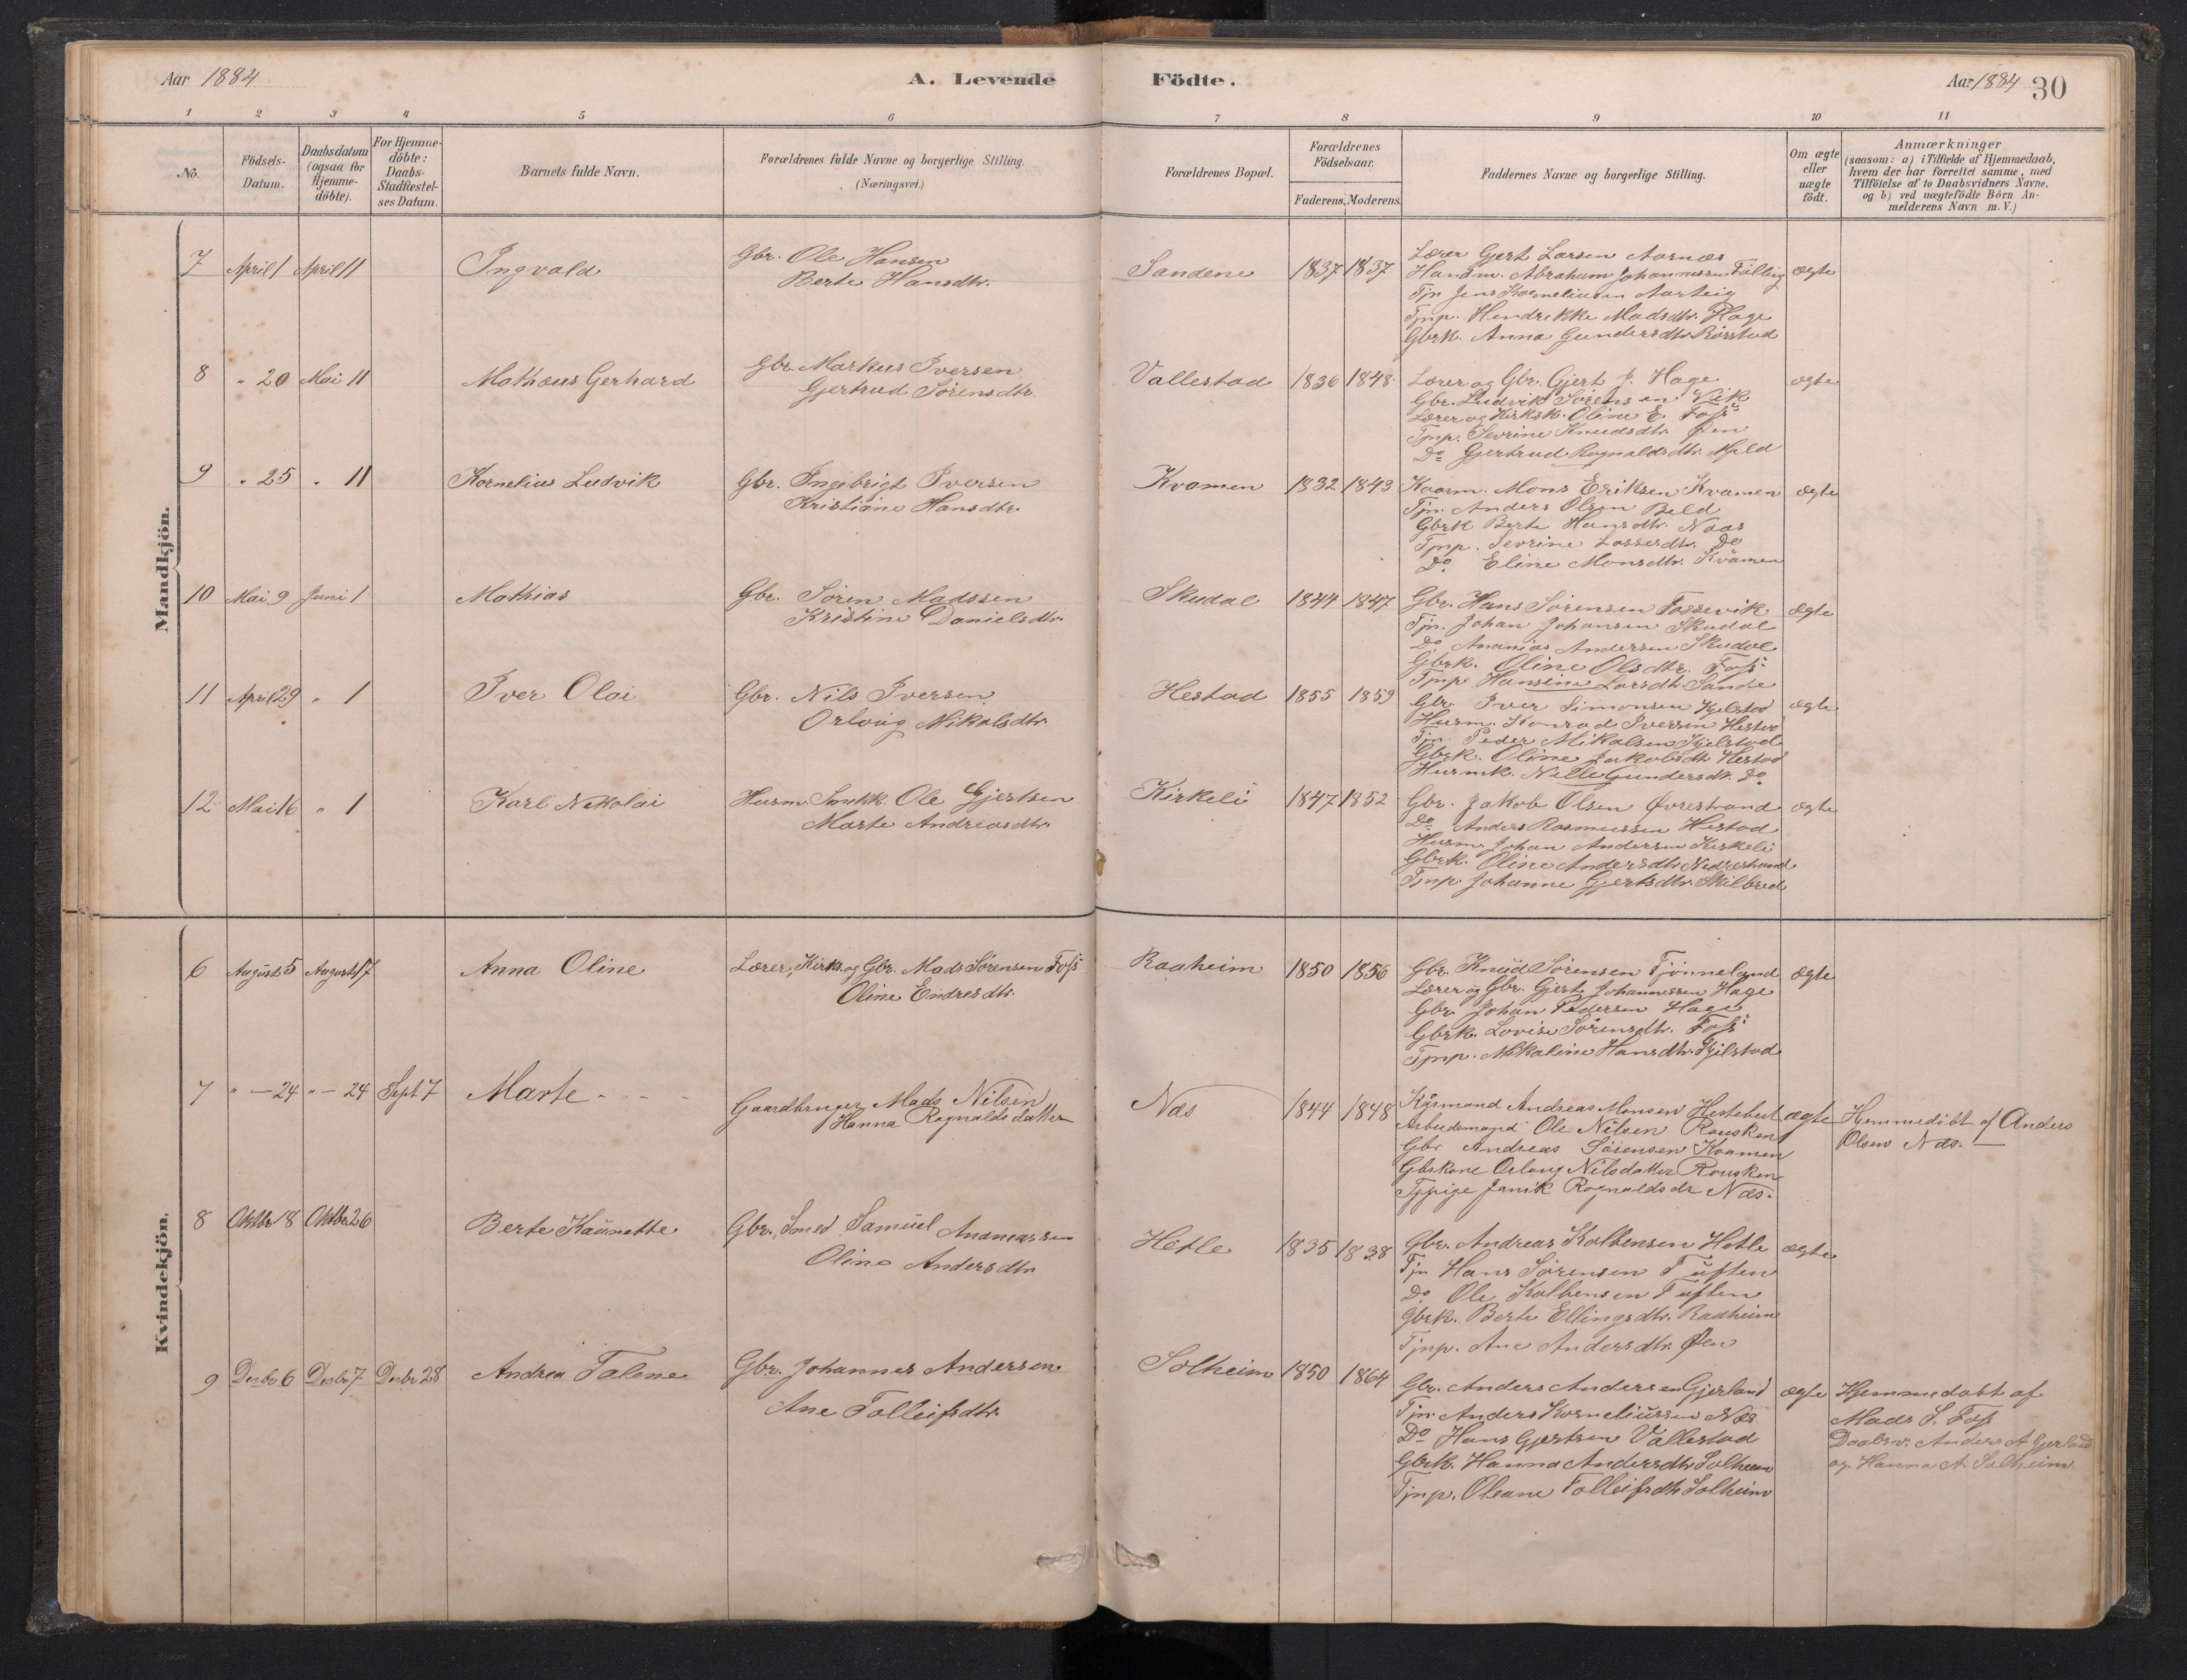 Aar 1884
A. Levende Födte.
Aar 1884 30
1 2 3 4 5 6 7 8 9 10 11
No.
Födsels-Datum.
Daabsdatum (ogsaa for Hjemme-döbte).
For Hjemme-döbte: Daabs-Stadfæstel-ses Datum.
Barnets fulde Navn.
Forældrenes fulde Navne og borgerlige Stilling.
(Næringsvei.)
Forældrenes Bopæl.
Forældrenes Födselsaar.
Faderens. Moderens.
Faddernes Navne og borgerlige Stilling.
Om ægte eller uægte födt.
Anmærkninger
(saasom: a) i Tilfælde af Hjemmedaab,
hvem der har forrettet samme, med
Tilföielse af to Daabsvidners Navne,
og b) ved uægtefödte Börn An-
melderens Navn m. V.)
Mandkjön.
7 April 1 April 11 Ingvald
Gbr. Ole Hansen
Berte Hansdtr.
Sandene 1837 1837
Lærer Gjert Larsen Aarnæs
Husm. Abraham Johannessen Fölling
Tjn Jens Korneliussen Aarteig
Tjnp. Hendrikke Madsdtr. Hage
Gbrk. Anna Gundersdtr. Rörstad
ægte
8 " 20 Mai 11 Mathæus Gerhard
Gbr. Markus Iversen
Gjertrud Sörensdtr.
Vallestad 1836 1848
Lærer og Gbr. Gjert J. Hage
Gbr. Ludvik Sörensen Vik
Lærer og Kirksk. Oline E. Foss
Tjnp. Sevrine Knudsdtr. Øen
Do Gjertrud Rognaldsdtr. Mjeld
ægte
9 " 25 " 11 Kornelius Ludvik
Gbr. Ingebrigt Iversen
Kristiane Hansdtr.
Kvamen 1832 1843
Kaarm. Mons Eriksen Kvamen
Tjn. Anders Olsen Beld
Gbrk Berte Hansdtr. Naas
Tjnp. Sevrine Lassesdtr. Do
Do Eline Monsdtr. Kvamen
ægte
10 Mai 9 Juni 1 Mathias
Gbr. Sören Madssen
Kristine Danielsdtr.
Skudal 1844 1847
Gbr. Hans Sörensen Fossevik
Tjn. Johan Johansen Skudal
Do Ananias Andersen Skudal
Gbrk. Oline Olsdtr. Foss
Tjnp Hansine Larsdtr. Sande
ægte
11 April 29 " 1 Iver Olai
Gbr. Nils Iversen
Orlaug Nikolsdtr.
Hestad 1855 1859
Gbr. Iver Simonsen Kjelstad
Husm. Konrad Iversen Hestad
Tjn. Peder Mikalsen Kjelstad
Gbrk. Oline Jakobsdtr Hestad
Husmk. Nille Gundersdtr. Do
ægte
12 Mai 16 " 1 Karl Nikolai
Husm. Snekk. Ole Gjertsen
Marte Andreasdtr.
Kirkeli 1847 1852
Gbr. Jakob Olsen Øvrestrand
Do Anders Rasmussen Hestad
Husm. Johan Andersen Kirkeli
Gbrk. Oline Andersdtr. Nedrestrand
Tjnp. Johanne Gjertsdtr. Skilbred
ægte
Kvindekjön.
6 August 5 August 17 Anna Oline
Lærer, Kirks. og Gbr. Mads Sörensen Foss
Oline Endresdtr.
Raaheim 1850 1856
Gbr. Knud Sörensen Tjönneland
Lærer og Gbr. Gjert Johannessen Hage
Gbr. Johan Pedersen Hage
Gbrk. Lovise Sörensdtr. Foss
Tjnp. Nikoline Hansdtr. Kjelstad
ægte
7 " - 24 " - 24 Sept 7 Marte
Gaardbruger Mads Nilsen
Hanna Rognaldsdatter
Næs 1844 1848
Kårmand Andreas Monsen Hestebeit
Arbeidsmand Ole Nilsen Rousken
Gbr Andreas Sörensen Kvamen
Gbrkone Orlaug Nilsdatter Rousken
Tjpige Janik Rognaldsdr Næs.
ægte
Hemmedöbt af Anders
Olsen Næs.
8 Oktbr 18 Oktbr 26 Berte Kaünette
Gbr., Smed Samüel Ananiassen
Oline Andersdtr
Hetle 1835 1838
Gbr. Andreas Kolbensen Hetle
Tjn Hans Sörensen Tuften
Do Ole Kolbensen Tuften
Gbrk. Berte Ellingsdtr. Raaheim
Tjnp. Ane Andersdtr. Øen
ægte
9 Desbr 6 Desbr 7 Desbr 28 Andrea Talene
Gbr. Johannes Andersen
Ane Tolleifsdtr.
Solheim 1850 1864
Gbr. Anders Andersen Gjerland
Tjn. Anders Korneliüssen Næs
Do Hans Gjertsen Vallestad
Gbrk. Hanna Andersdtr Solheim
Tjnp. Oleane Tolleifsdtr Solheim
ægte
Hjemmedöbt af
Mads S. Foss
Daabsv. Anders A Gjerland
og Hanna A. Solheim